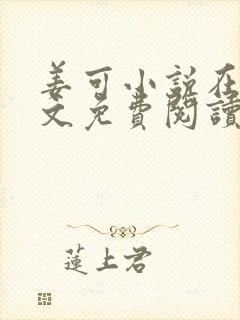 姜可小説在
文免費閱讀
蓮上君